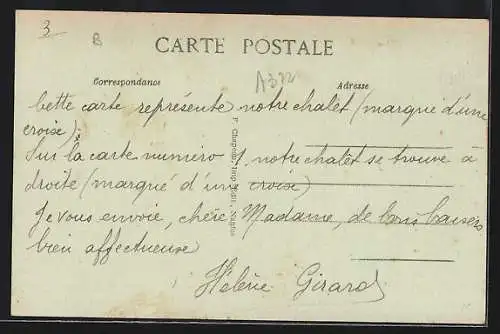 3
B
CARTE POSTALE
A322
Correspondance
Adresse
Cette carte représente notre chalet (marqué d'une
croise).
Sur la carte numéro 1. notre chalet se trouve à
droite (marqué d'un croise)
Je vous envoie, chère Madame, de bons baisers
bien affectueuse
Hélène Girard